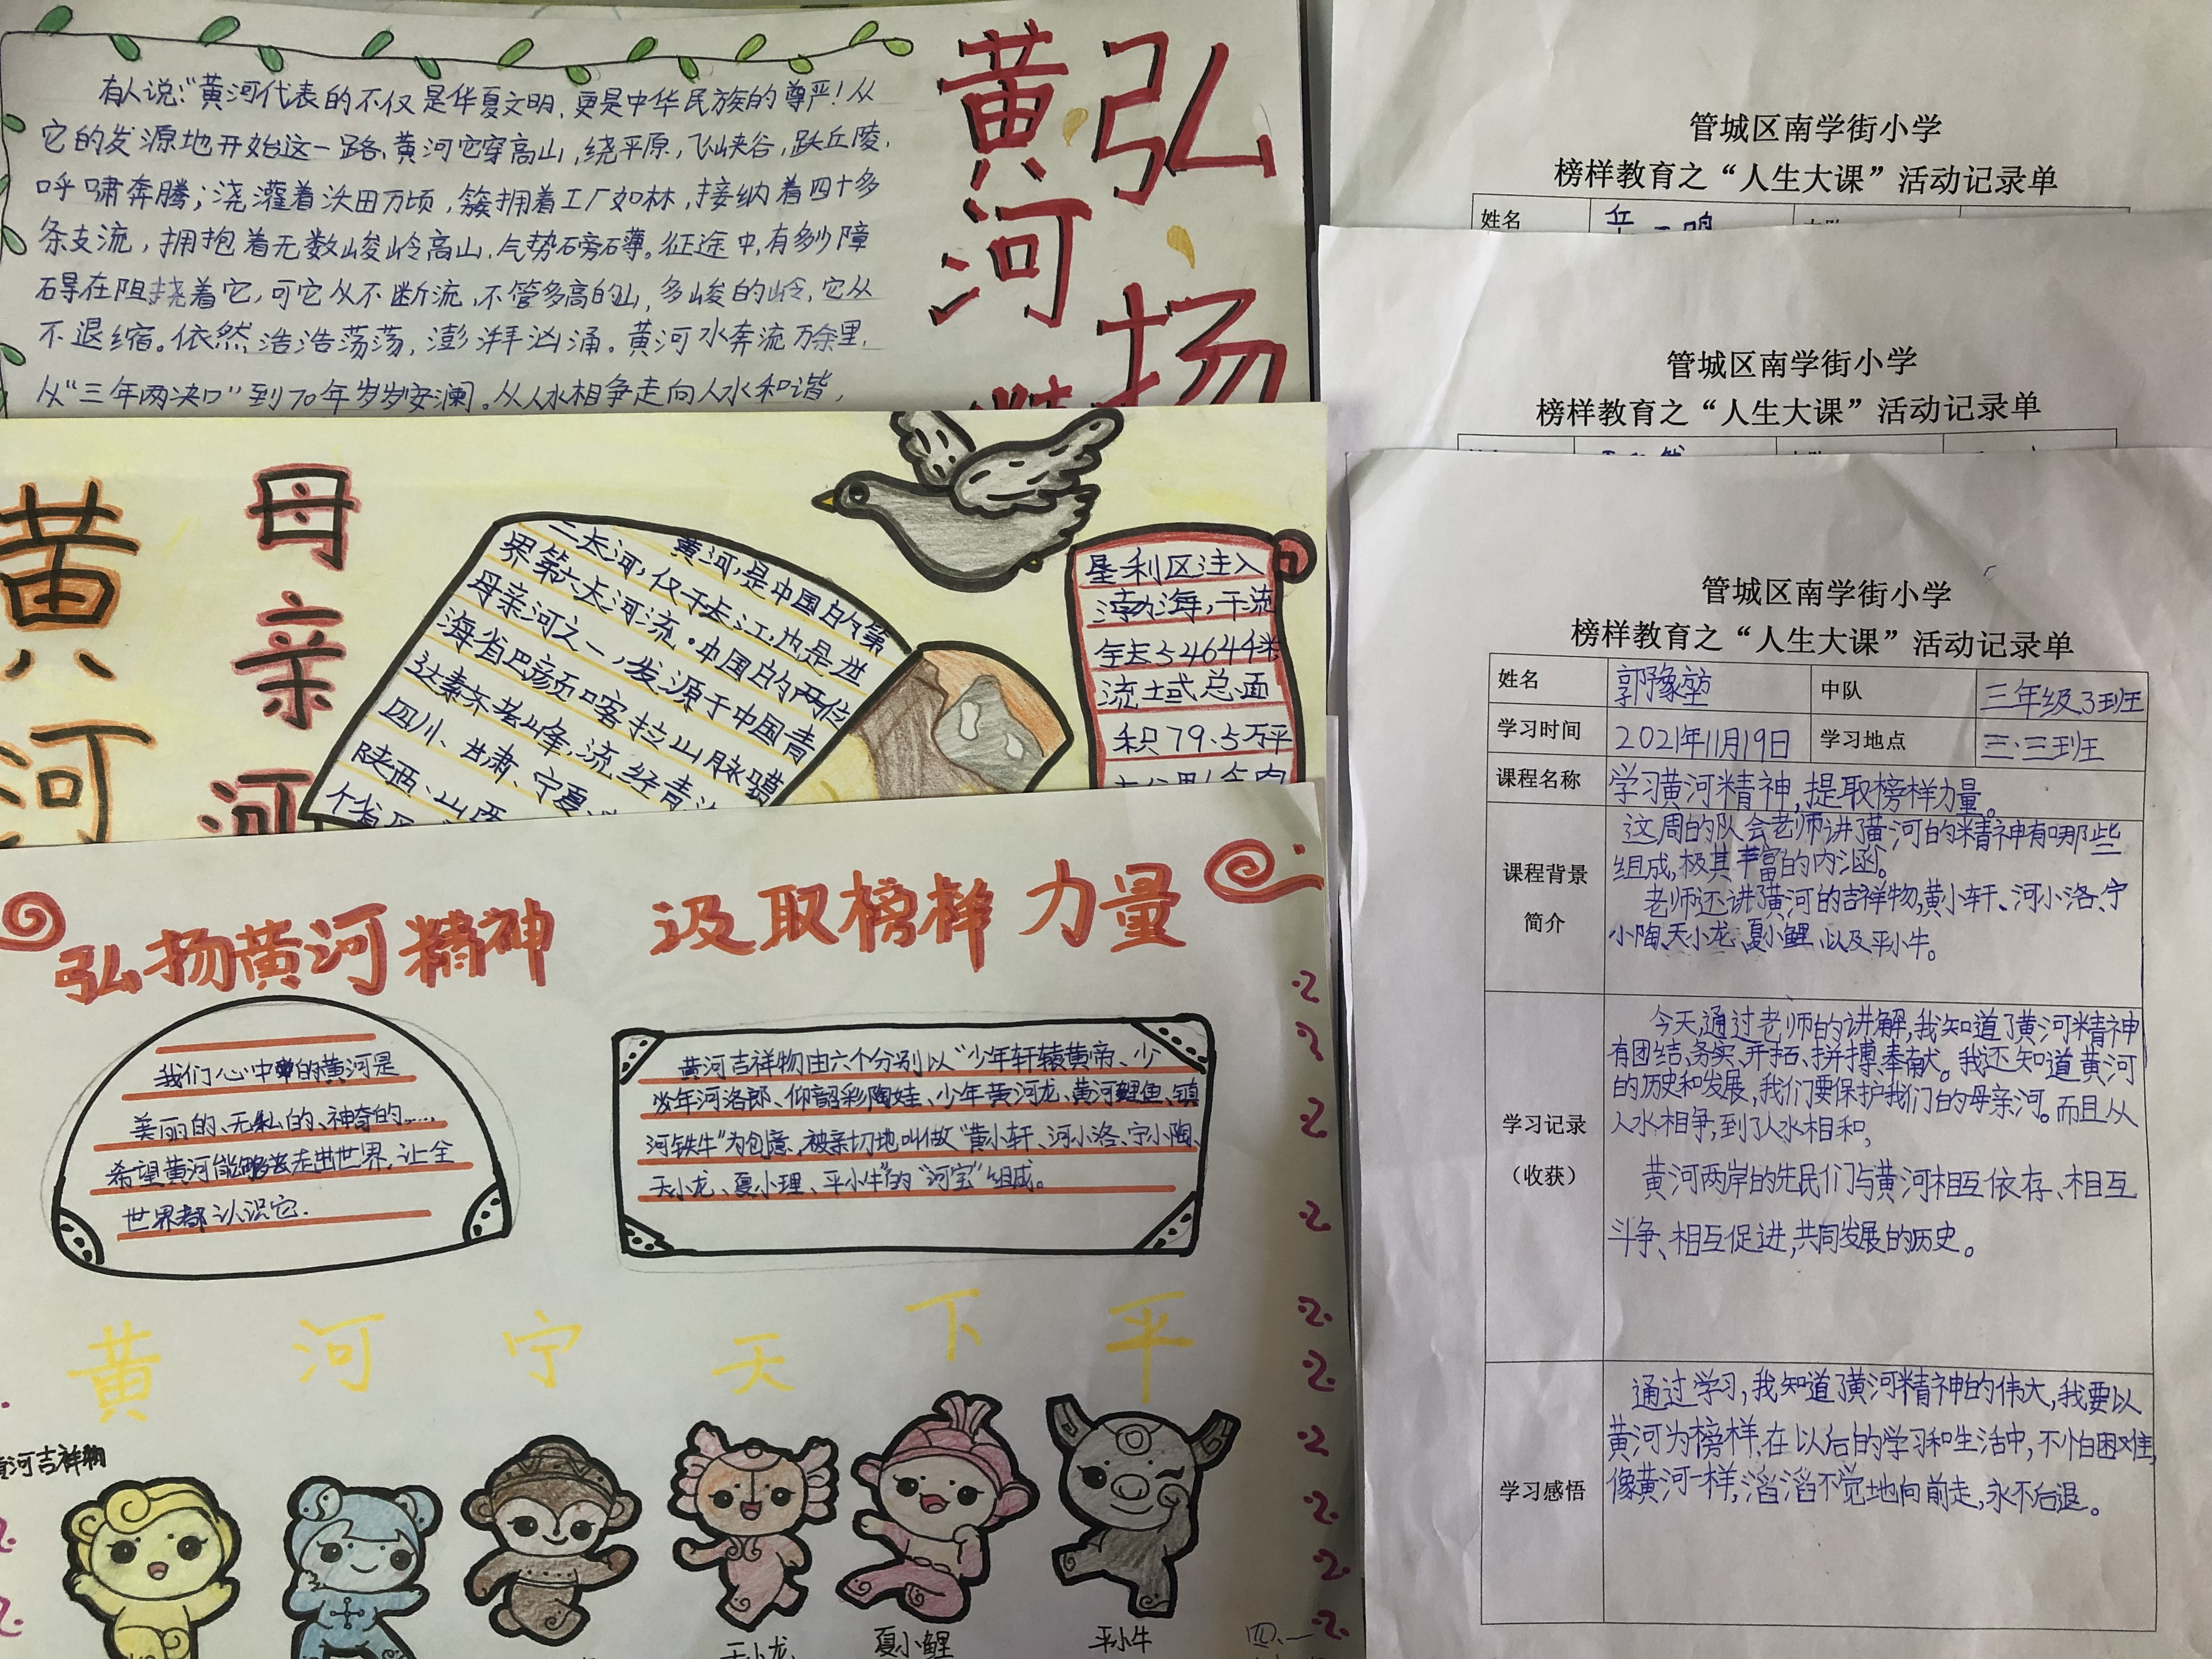 弘扬
黄河
有人说:“黄河代表的不仅是华夏文明,更是中华民族的尊严!从
它的发源地开始这一路,黄河它穿高山,绕平原,飞峡谷,跃丘陵,
呼啸奔腾;浇灌着沃田万顷,簇拥着工厂如林,接纳着四十多
条支流,拥抱着无数峻岭高山,气势磅礴。征途中,有多少障
碍在阻挠着它,可它从不断流,不管多高的山,多峻的岭,它从
不退缩。依然浩浩荡荡,澎湃汹涌。黄河水奔流万余里,
从“三年两决口”到70年岁岁安澜。从人水相争走向人水和谐,
黄河
母亲河
黄河,是中国的第
二长河,仅于长江,也是世
界第六大河流。中国的两位
母亲河之一,发源于中国青
海省巴彦
喀拉山脉
四川、甘肃、宁夏、
陕西、山西
个省
垦利区注入
渤海,干流
全长5464千米
流域总面
积79.5万平
弘扬黄河精神 汲取榜样力量
我们心中的黄河是
美丽的、无私的、神奇的……
希望黄河能够走出世界,让全
世界都认识它.
黄河吉祥物由六个分别以“少年轩辕黄帝、少
少年河洛郎、仰韶彩陶娃、少年黄河龙、黄河鲤鱼、镇
河铁牛”为创意,被亲切地叫做“黄小轩、河小洛、宁小陶、
天小龙、夏小理、平小牛”的“河宝”组成。
黄河宁天下平
黄河吉祥物
天小龙
夏小鲤
平小牛
四.一
管城区南学街小学
榜样教育之“人生大课”活动记录单
姓名
管城区南学街小学
榜样教育之“人生大课”活动记录单
管城区南学街小学
榜样教育之“人生大课”活动记录单
姓名 郭豫堃 中队 三年级3班
学习时间 2021年11月19日 学习地点 三.三班
课程名称 学习黄河精神,提取榜样力量。
课程背景
简介
这周的队会老师讲了黄河的精神有哪些
组成,极其丰富的内涵。
老师还讲了黄河的吉祥物,黄小轩、河小洛、宁
小陶、天小龙、夏小鲤、以及平小牛。
学习记录
(收获)
今天,通过老师的讲解,我知道了黄河精神
有团结、务实、开拓、拼搏、奉献。我还知道黄河
的历史和发展,我们要保护我们的母亲河。而且从
人水相争,到了人水相和,
黄河两岸的先民们与黄河相互依存、相互
斗争、相互促进,共同发展的历史。
学习感悟
通过学习,我知道了黄河精神的伟大,我要以
黄河为榜样,在以后的学习和生活中,不怕困难,
像黄河一样,滔滔不觉地向前走,永不后退。